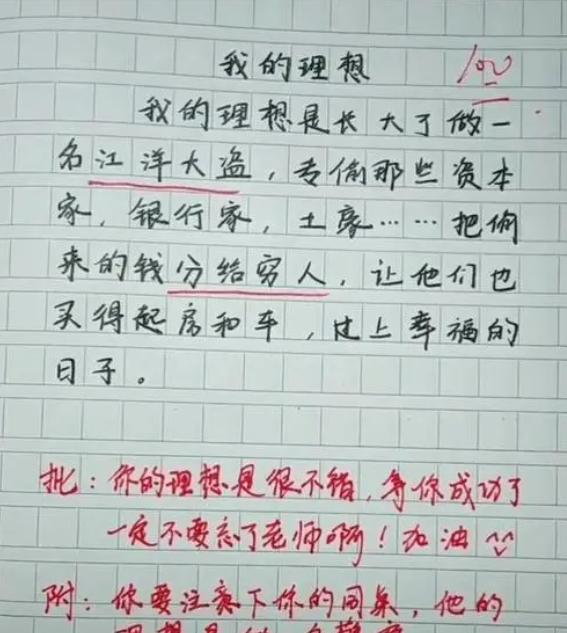 我的理想
100
我的理想是长大了做一
名江洋大盗，专偷那些资本
家，银行家，土豪……把偷
来的钱分给穷人，让他们也
买得起房和车，过上幸福的
日子。
批：你的理想是很不错，等你成功了
一定不要忘了老师啊！加油
附：你要注意下你的同桌，他的
理想是